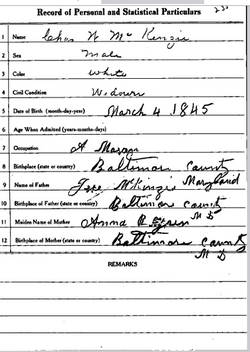 Record of Personal and Statistical Particulars
1 Name Chas N McKenzie
2 Sex Male
3 Color White
4 Civil Condition Widower
5 Date of Birth (month-day-year) March 4 1845
6 Age When Admitted (years-months-days)
7 Occupation A Mason
8 Birthplace (state or country) Baltimore County
9 Name of Father McKinzie Maryland
10 Birthplace of Father (state or country) Baltimore county
11 Maiden Name of Mother Anna MD
12 Birthplace of Mother (state or country) Baltimore County
MD
REMARKS